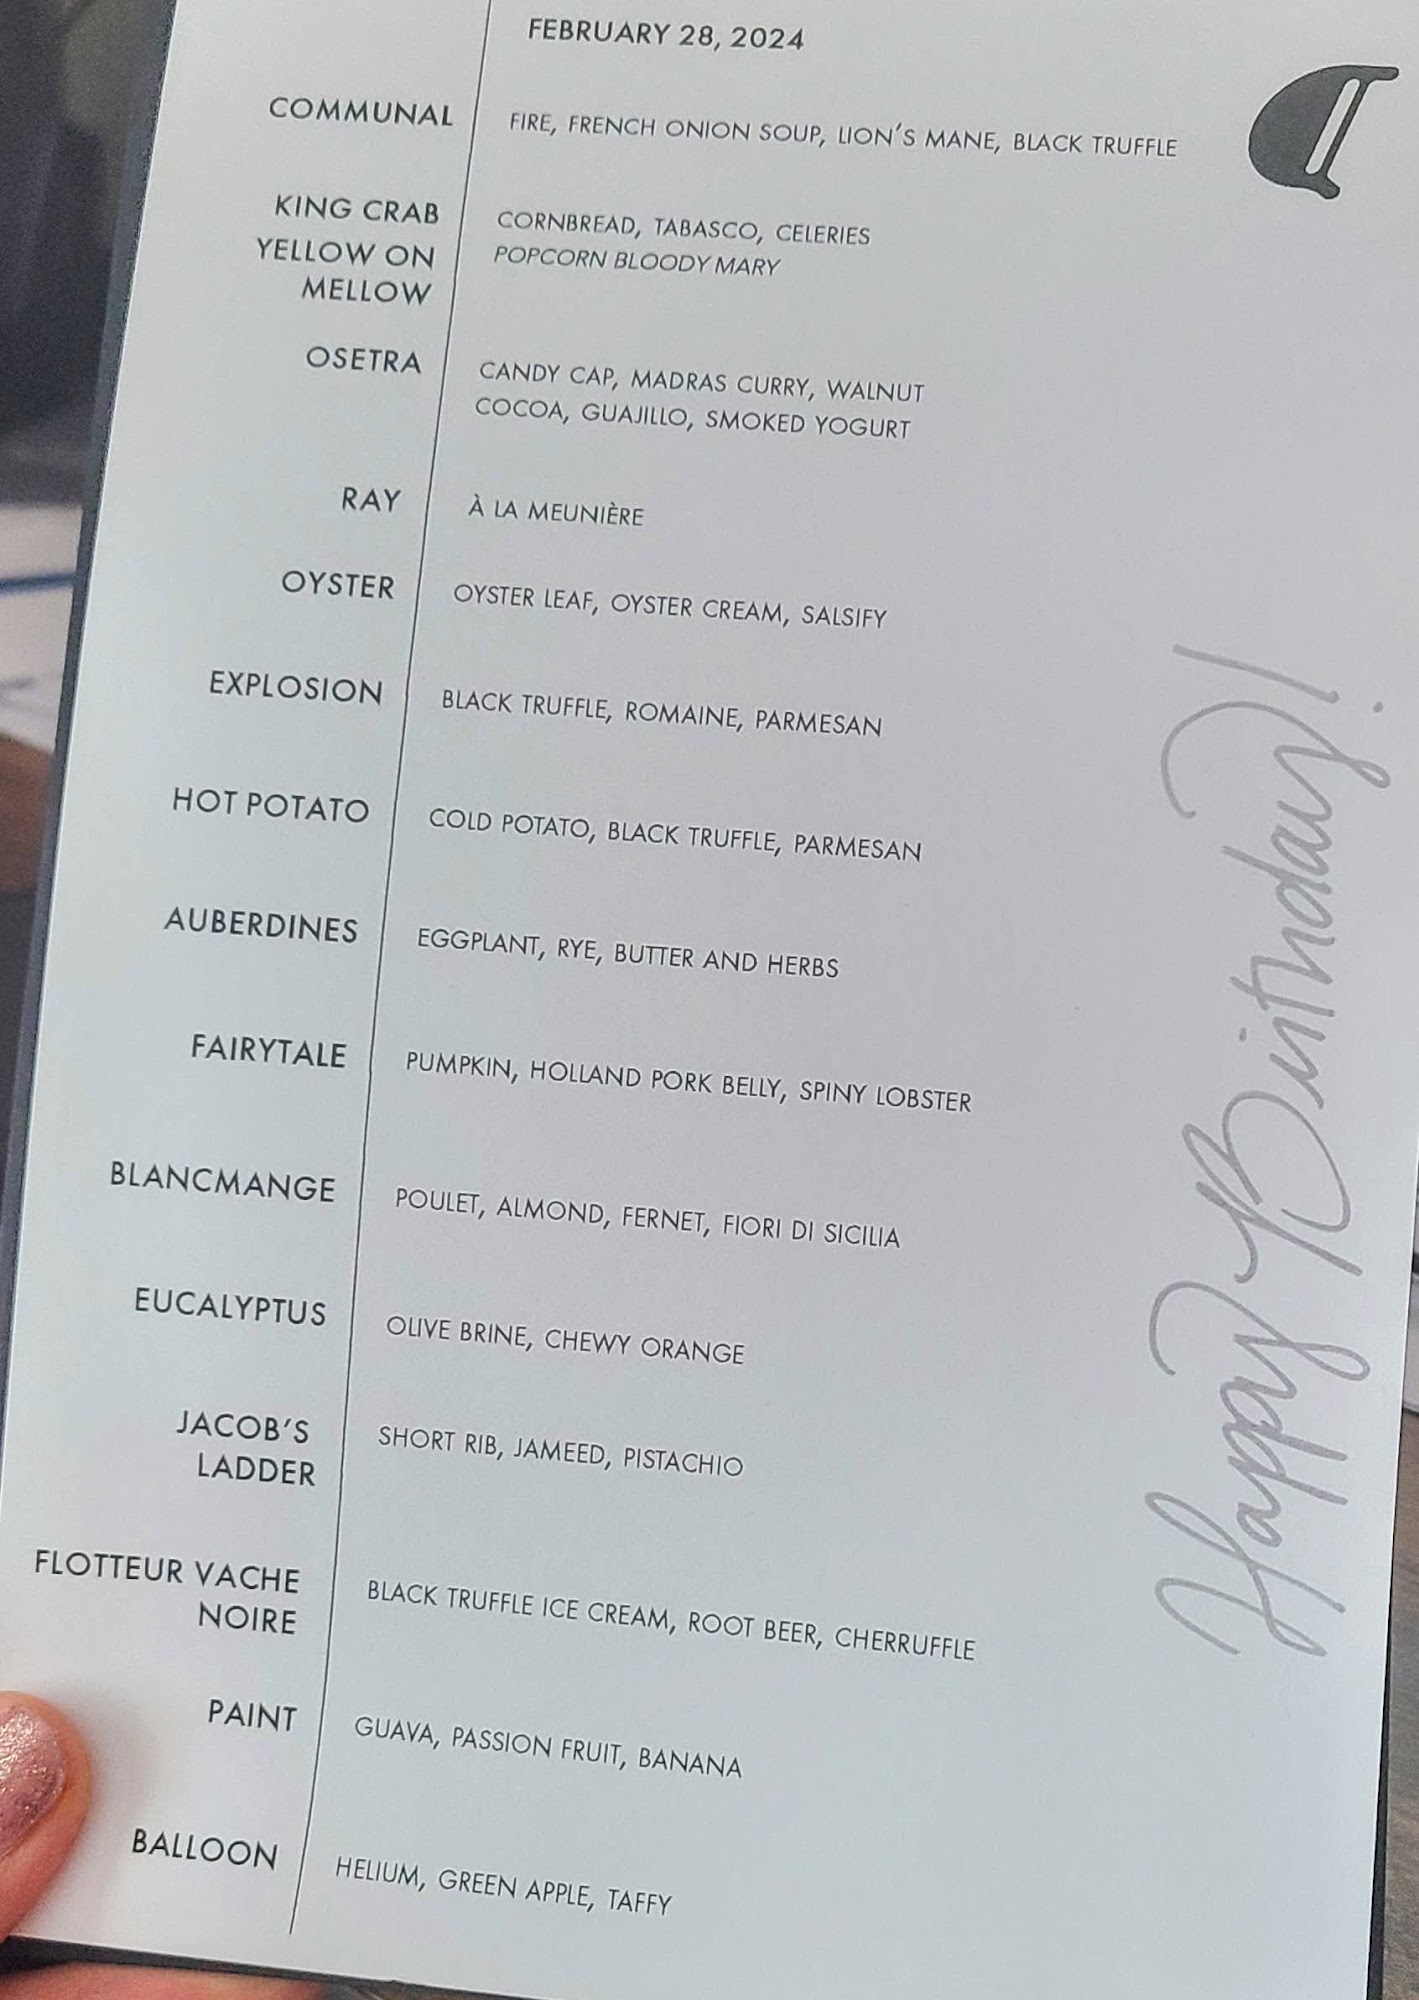 FEBRUARY 28, 2024
COMMUNAL
FIRE, FRENCH ONION SOUP, LION'S MANE, BLACK TRUFFLE
KING CRAB
CORNBREAD, TABASCO, CELERIES
YELLOW ON
MELLOW
POPCORN BLOODY MARY
OSETRA
CANDY CAP, MADRAS CURRY, WALNUT
COCOA, GUAJILLO, SMOKED YOGURT
RAY
À LA MEUNIÈRE
OYSTER
OYSTER LEAF, OYSTER CREAM, SALSIFY
EXPLOSION
BLACK TRUFFLE, ROMAINE, PARMESAN
HOT POTATO
COLD POTATO, BLACK TRUFFLE, PARMESAN
AUBERDINES
EGGPLANT, RYE, BUTTER AND HERBS
FAIRYTALE
PUMPKIN, HOLLAND PORK BELLY, SPINY LOBSTER
BLANCMANGE
POULET, ALMOND, FERNET, FIORI DI SICILIA
EUCALYPTUS
OLIVE BRINE, CHEWY ORANGE
JACOB'S
LADDER
SHORT RIB, JAMEED, PISTACHIO
FLOTTEUR VACHE
NOIRE
BLACK TRUFFLE ICE CREAM, ROOT BEER, CHERRUFFLE
PAINT
GUAVA, PASSION FRUIT, BANANA
BALLOON
HELIUM, GREEN APPLE, TAFFY
Happy Birthday!